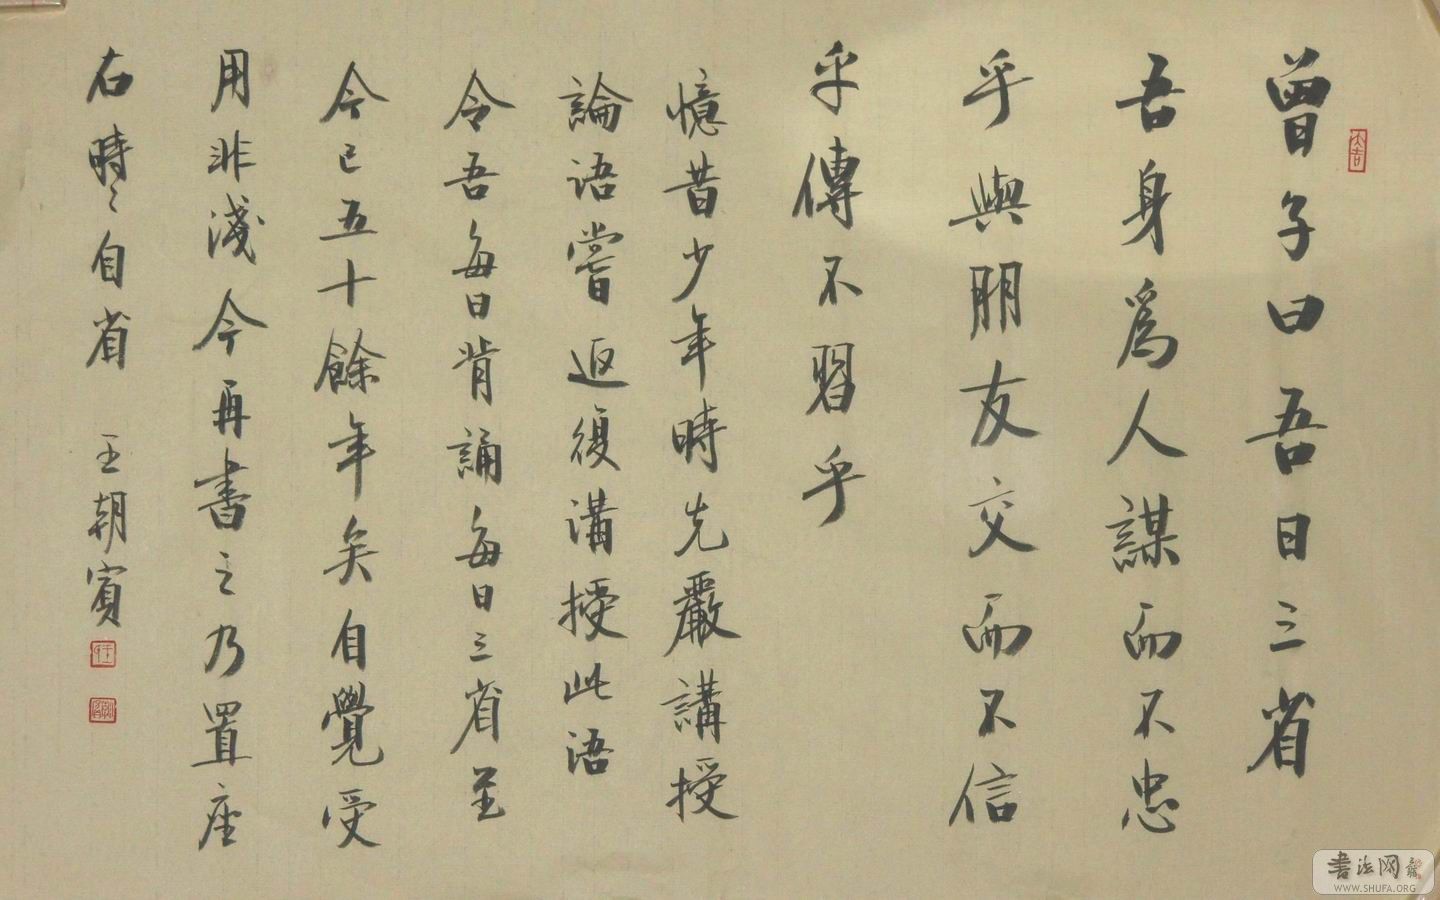 曾子曰吾日三省
吾身為人謀而不忠
乎與朋友交而不信
乎傳不習乎
憶昔少年時先嚴講授
論語嘗返復講授此語
令吾每日背誦每日三省至
今已五十餘年矣自覺受
用非淺今再書之乃置座
右時々自省 王朝賓
書法网
WWW.SHUFA.ORG